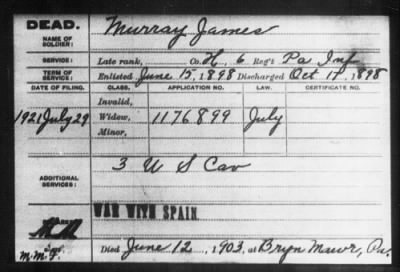 DEAD.
NAME OF SOLDIER: Murray James
SERVICE: Late rank, Co. H, 6 Reg't Pa Inf
TERM OF SERVICE: Enlisted June 15, 1898 Discharged Oct 17, 1898
DATE OF FILING. CLASS. APPLICATION NO. LAW. CERTIFICATE NO.
Invalid,
1921 July 29 Widow, 1176899 July
Minor,
ADDITIONAL SERVICES: 3 U S Cav
WAR WITH SPAIN.
Died June 12, 1903, at Bryn Mawr, Pa.